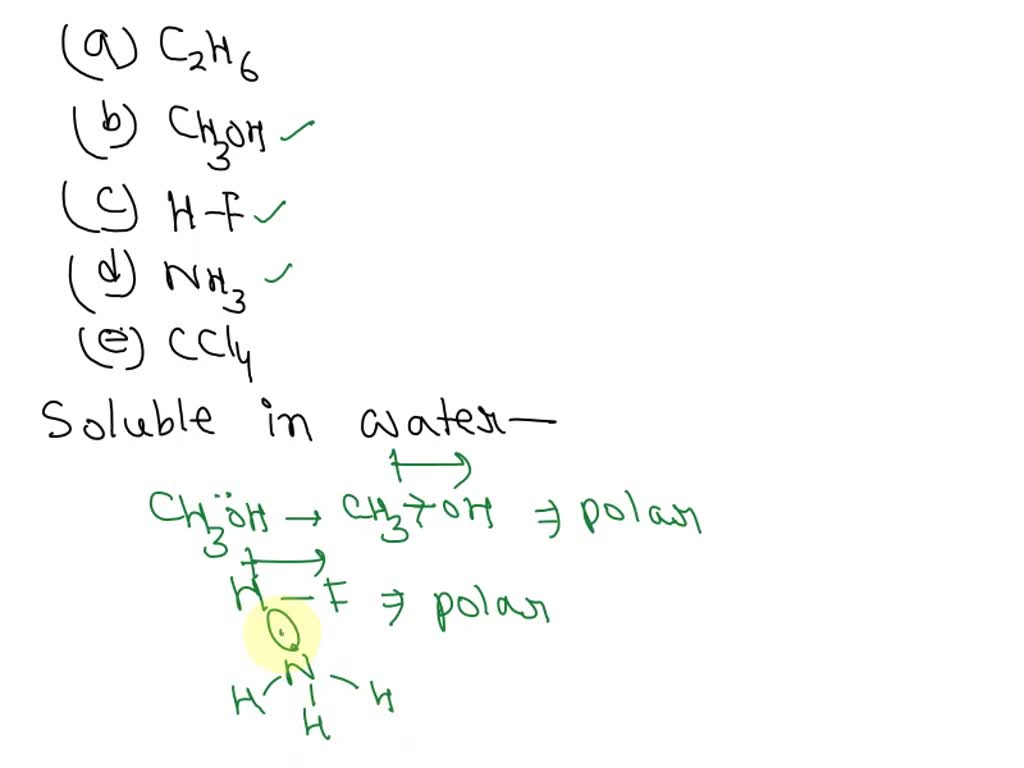 (a) C₂H₆
(b) CH₃OH ✓
(c) H–F ✓
(d) NH₃ ✓
(e) CCl₄
Soluble in water—
CH₃ÖH → CH₃ → OH ⇒ polar
H – F ⇒ polar
N
H H H